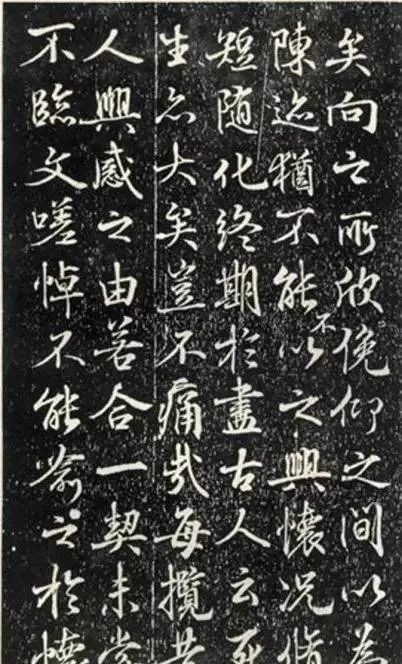 矣向之所欣俛仰之間以為
陳迹猶不能不以之興懷況脩
短隨化終期於盡古人云死
生亦大矣豈不痛哉每攬昔
人興感之由若合一契未嘗
不臨文嗟悼不能喻之於懷